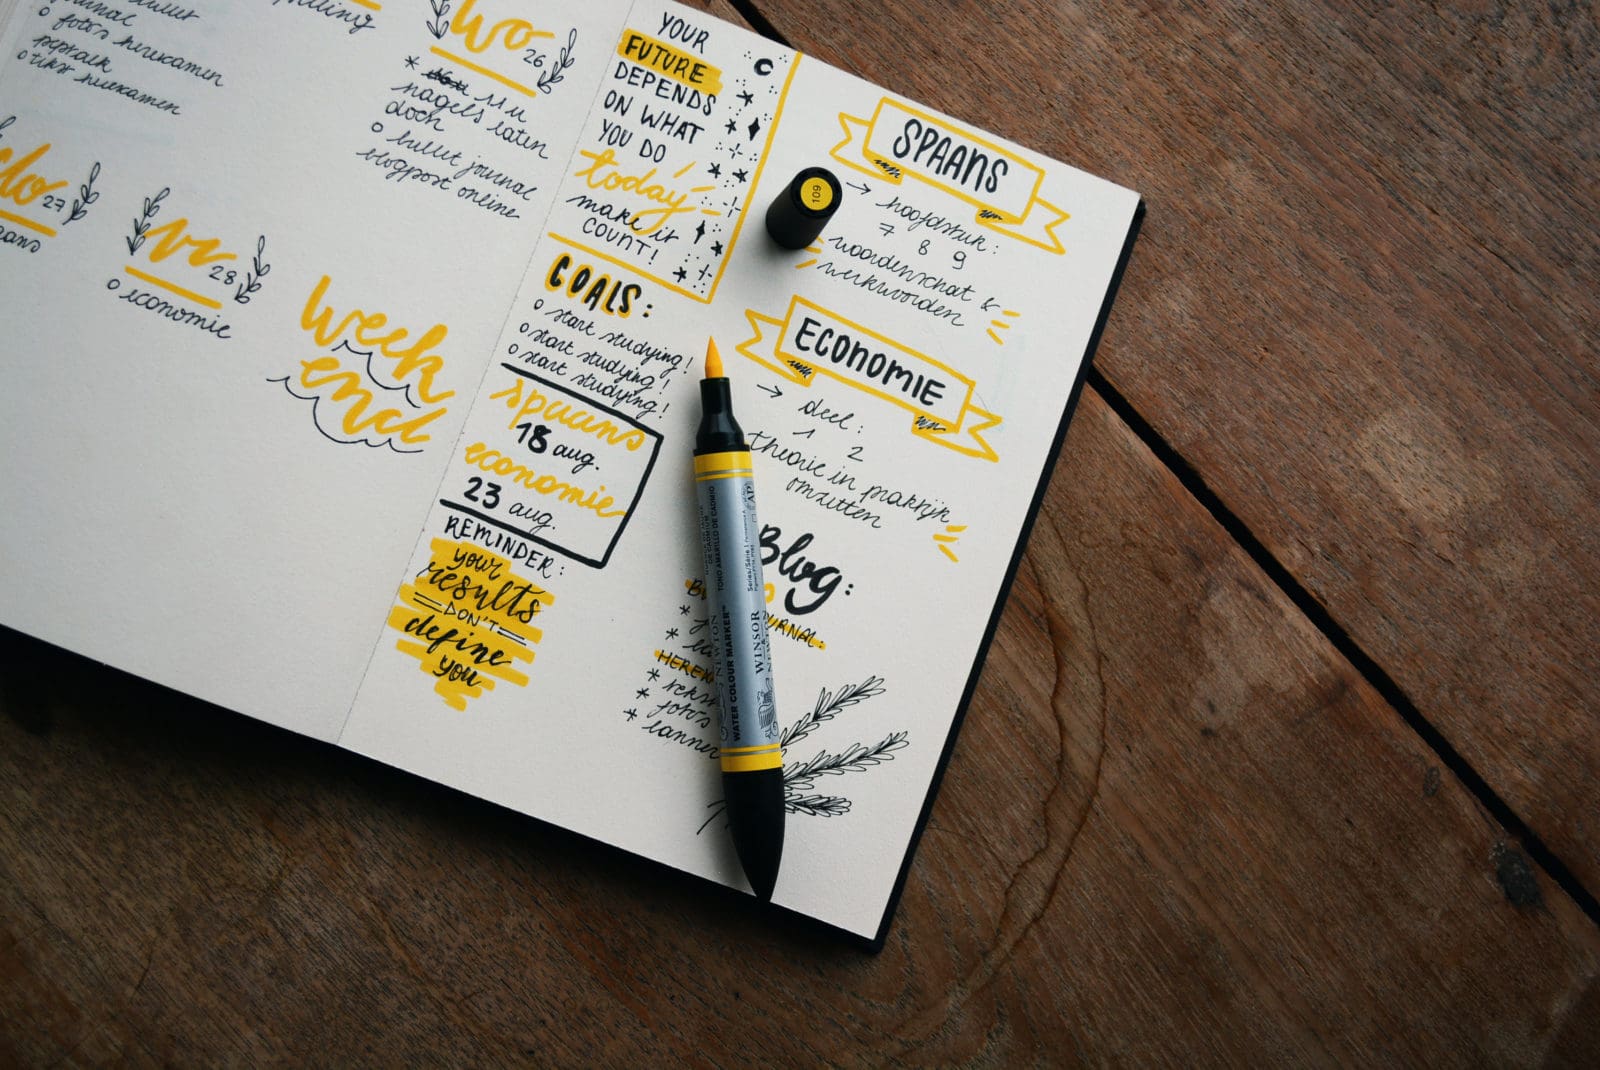 o foto's herexamen
o tekst herexamen
Wo
26
* 11u
nagels laten
doen
o bullet journal
blogpost online
do
27
vr
28
o economie
week
end
YOUR
FUTURE
DEPENDS
ON WHAT
YOU DO
today
make it
COUNT!
GOALS:
o start studying!
o start studying!
o start studying!
spaans
18 aug.
economie
23 aug.
REMINDER:
your
results
DON'T
define
you
109
SPAANS
→ hoofdstuk:
7 8 9
woordenschat &
werkwoorden
ECONOMIE
→ deel:
1 2
theorie in praktijk
omzetten
Blog:
URNAL:
HEREX
*
*
* tekst
* foto's
* banner
WINSOR
& NEWTON
WATER COLOUR MARKER™
Series/Série 1